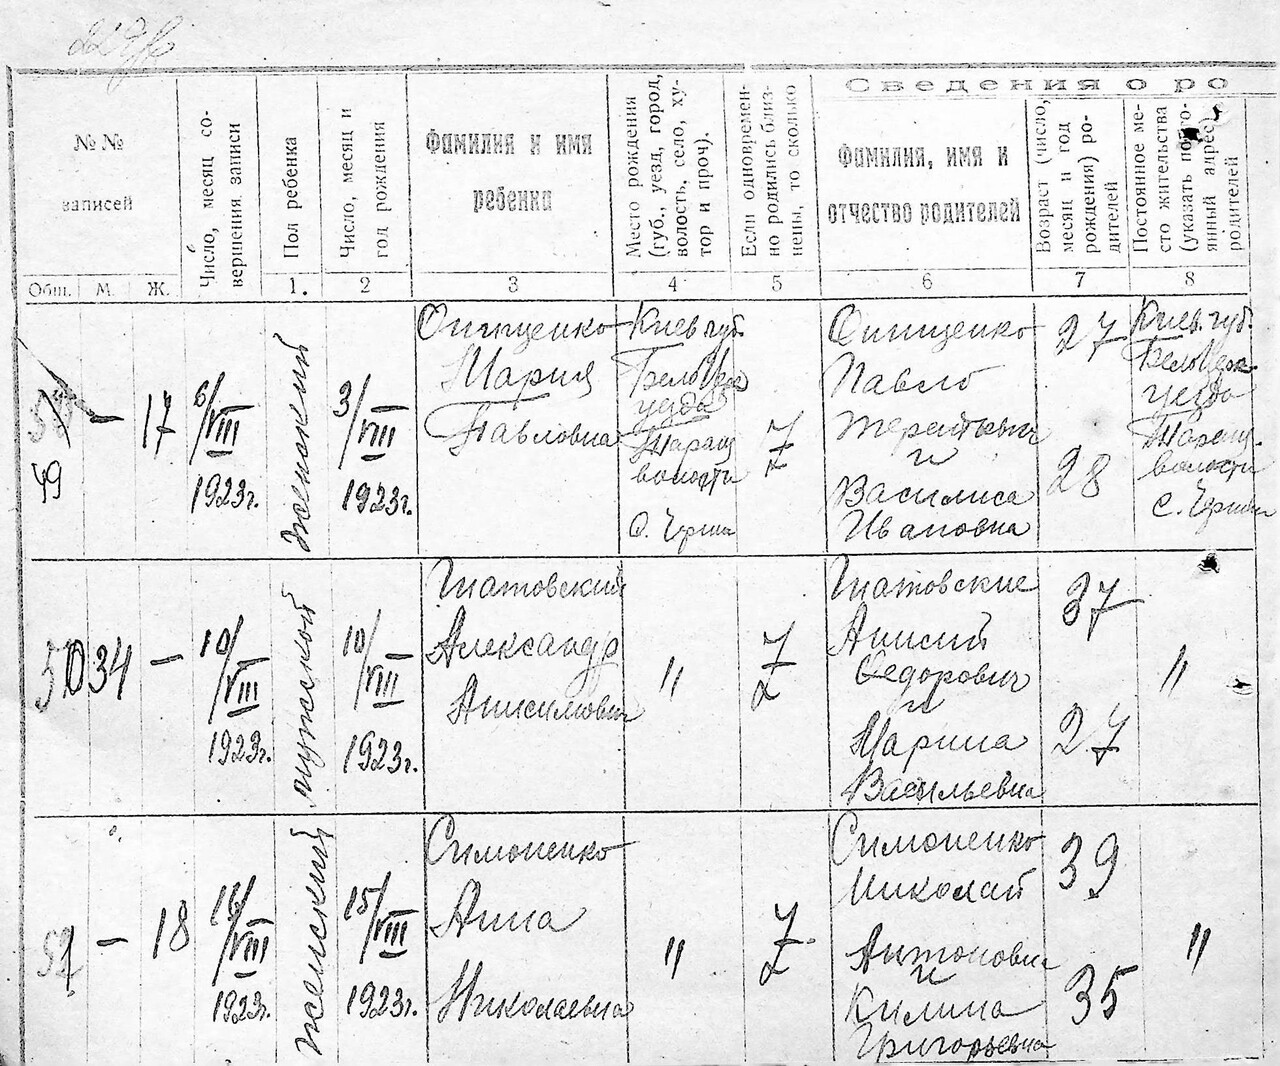 Сведения о ро
№ №
записей
Число, месяц совершения записи
Пол ребенка
Число, месяц и год рождения
Фамилия и имя
ребенка
Место рождения (губ., уезд, город, волость, село, хутор и проч.).
Если одновременно родились близнецы, то сколько
Фамилия, имя и
отчество родителей
Возраст (число, месяц и год рождения) родителей
Постоянное место жительства (указать подлоянный адрес) родителей
Общ. М. Ж. 1. 2 3 4 5 6 7 8
49 — 17
6/VIII
1923г.
женский
3/VIII
1923г.
Онищенко
Мария
Павловна
Киев губ.
Белоцерк
уезда
Таращ
волости
с. Черкис
Онищенко
Павло
Терентьич
и
Василиса
Ивановна
27
28
Киев. губ.
Белоцерк
уезда
Таращ.
волости
50 34 —
10/VIII
1923г.
мужской
10/VIII
1923г.
Шатовский
Александр
Анисимович
"
Шатовские
Анисий
Федорович
и
Марина
Васильевна
37
27
"
51 — 18
16/VIII
1923г.
женский
15/VIII
1923г.
Симоненко
Анна
Николаевна
"
Симоненко
Николай
Антонович
и
Килина
Григорьевна
39
35
"